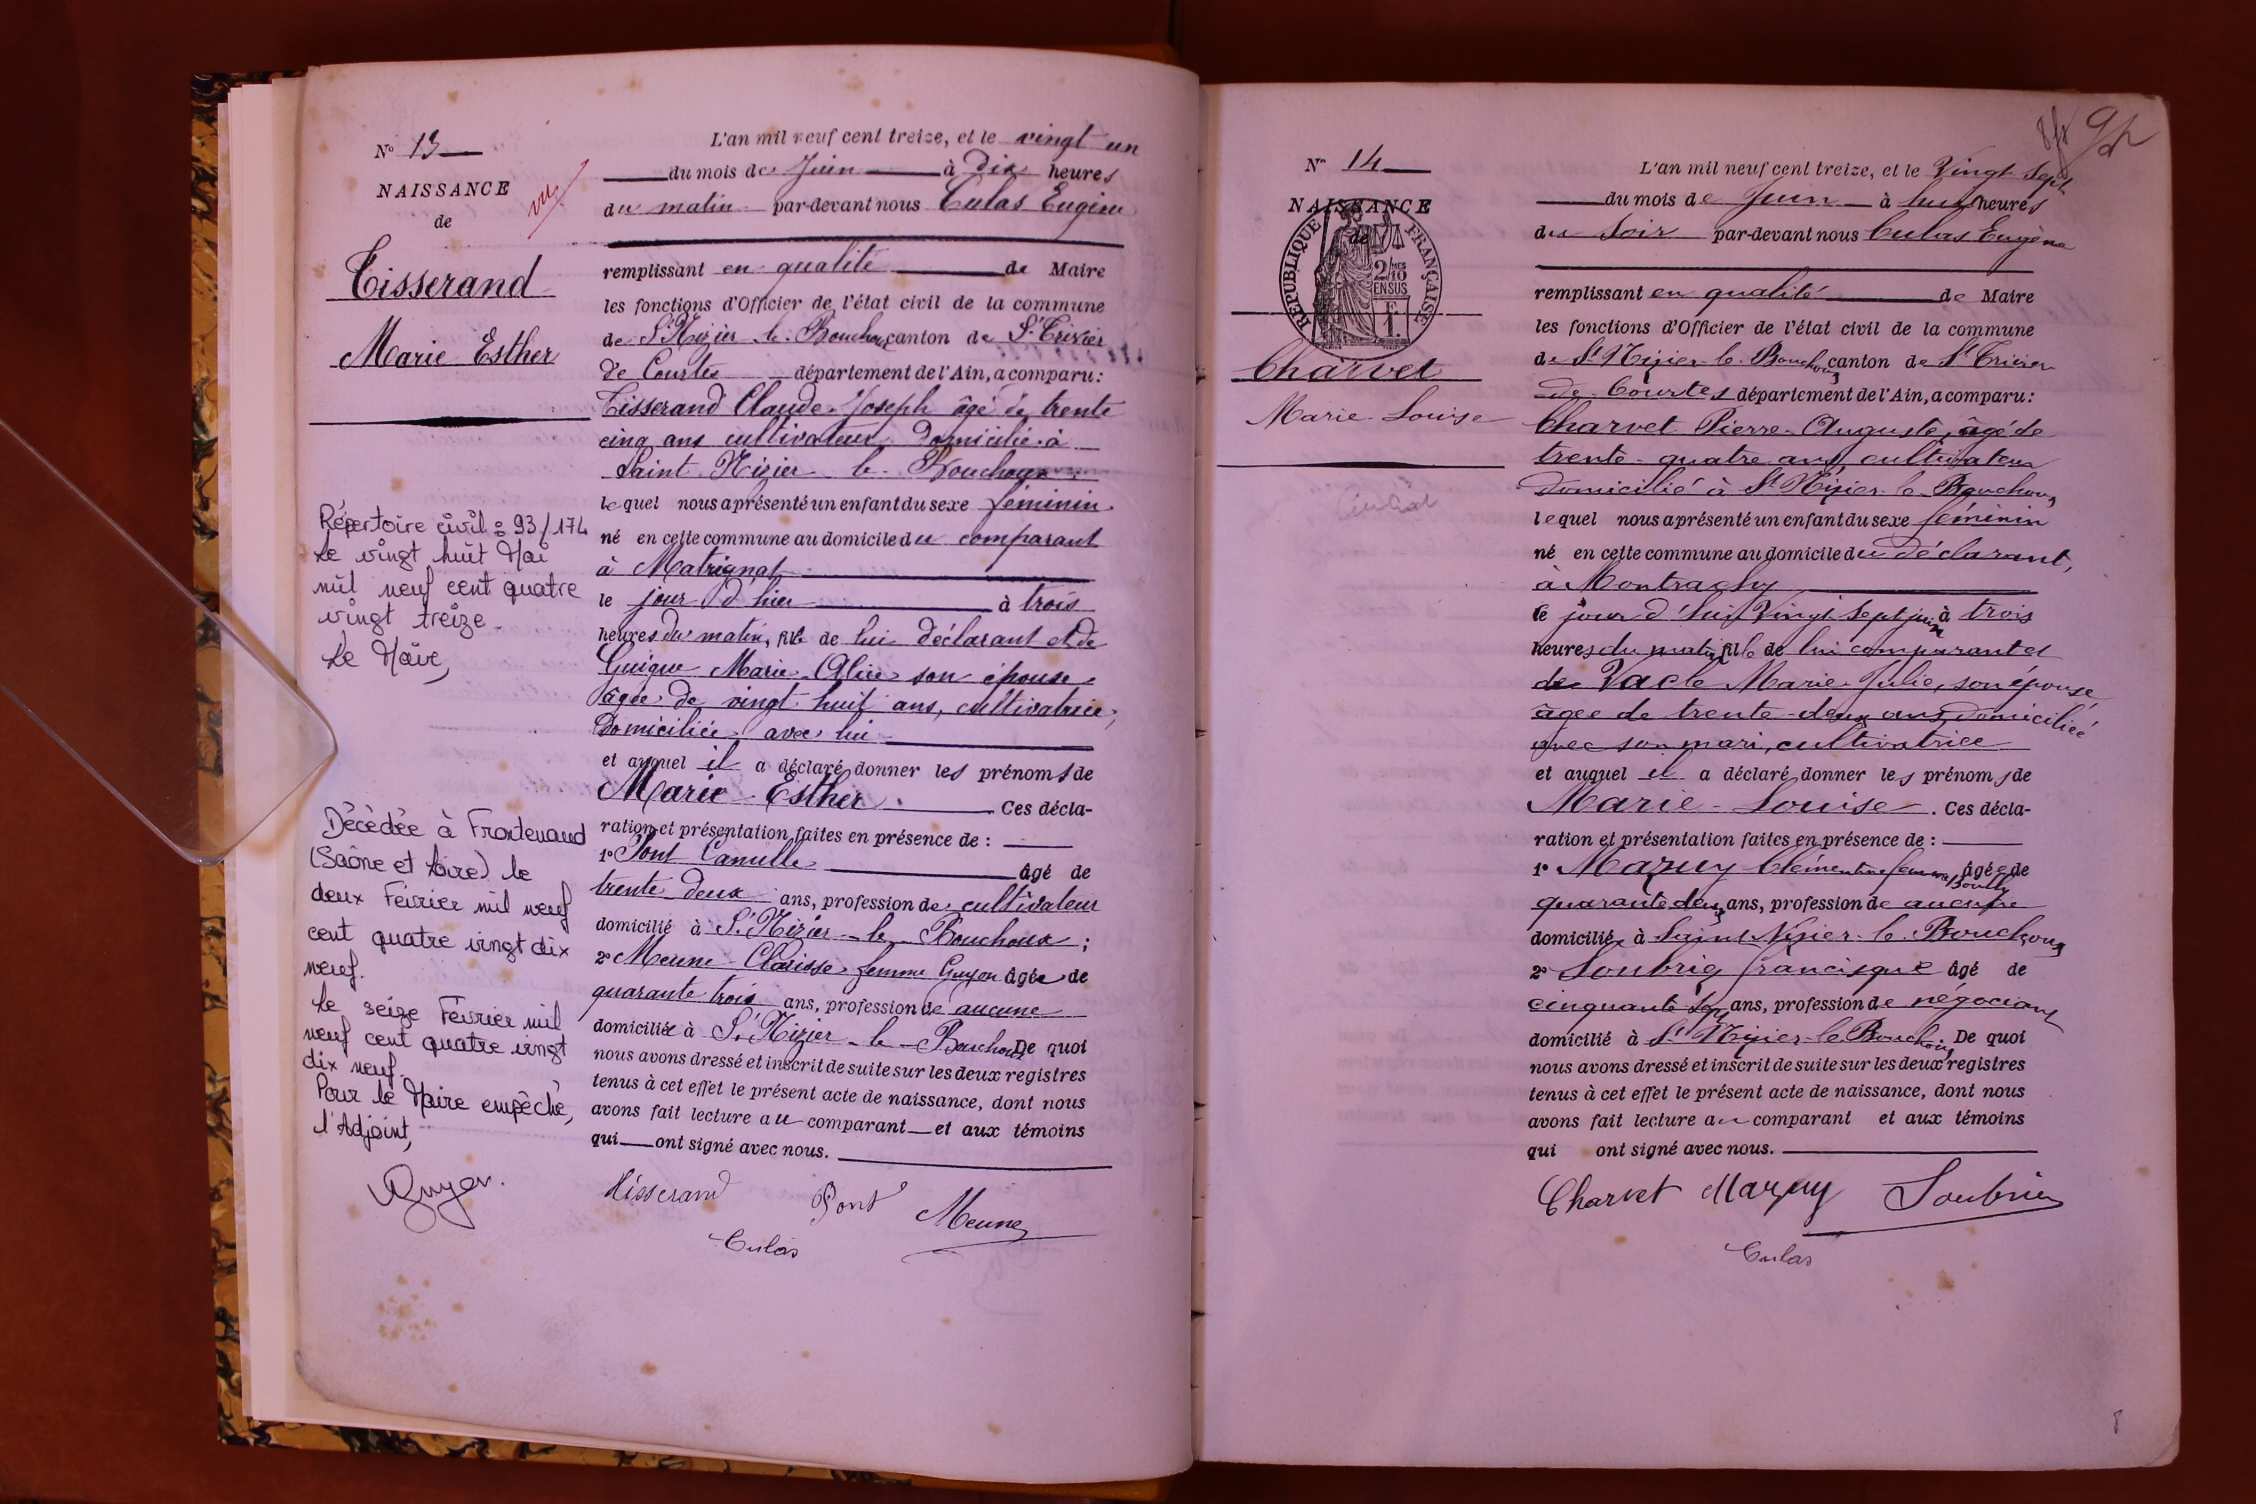 N° 13
NAISSANCE
de
Tisserand
Marie Esther
vu
Répertoire civil : 93/174
Le vingt huit Mai
mil neuf cent quatre
vingt treize.
Le Maire,
Décédée à Frontenaud
(Saône et Loire) le
deux Février mil neuf
cent quatre vingt dix
neuf.
Le seize Février mil
neuf cent quatre vingt
dix neuf.
Pour le Maire empêché,
l'Adjoint,
L'an mil neuf cent treize, et le vingt un
du mois de Juin à Dix heures
du matin par-devant nous Culas Eugène
remplissant en qualité de Maire
les fonctions d'Officier de l'état civil de la commune
de St Nizier le Bouchoux canton de St Trivier
de Courtes département de l'Ain, a comparu :
Tisserand Claude Joseph âgé de trente
cinq ans cultivateur, domicilié à
Saint Nizier le Bouchoux
lequel nous a présenté un enfant du sexe féminin
né en cette commune au domicile du comparant
à Matrignat
le jour d'hier à trois
heures du matin, fille de lui déclarant et de
Guigue Marie Alice son épouse
âgée de vingt huit ans, cultivatrice,
domiciliée avec lui
et auquel il a déclaré donner les prénoms de
Marie Esther. Ces décla-
ration et présentation faites en présence de :
1° Pont Camille âgé de
trente deux ans, profession de cultivateur
domicilié à St Nizier le Bouchoux ;
2° Meune Clarisse femme Guyon âgée de
quarante trois ans, profession de aucune
domiciliée à St Nizier le Bouchoux De quoi
nous avons dressé et inscrit de suite sur les deux registres
tenus à cet effet le présent acte de naissance, dont nous
avons fait lecture au comparant et aux témoins
qui ont signé avec nous.
Tisserand Pont Meune
Culas
N° 14
NAISSANCE
de
RÉPUBLIQUE FRANÇAISE
2/10 MES
EN SUS
F
1
Charvet
Marie Louise
L'an mil neuf cent treize, et le Vingt sept
du mois de Juin à huit heures
du Soir par-devant nous Culas Eugène
remplissant en qualité de Maire
les fonctions d'Officier de l'état civil de la commune
de St Nizier le Bouchoux canton de St Trivier
de Courtes département de l'Ain, a comparu :
Charvet Pierre Auguste, âgé de
trente quatre ans, cultivateur
domicilié à St Nizier le Bouchoux
lequel nous a présenté un enfant du sexe féminin
né en cette commune au domicile du déclarant,
à Montrachy
le jour d'hui Vingt sept juin à trois
heures du matin fille de lui comparant et
de Vacle Marie Julie, son épouse
âgée de trente-deux ans, domiciliée
avec son mari, cultivatrice
et auquel il a déclaré donner les prénoms de
Marie-Louise. Ces décla-
ration et présentation faites en présence de :
1° Mazuy Clémentine femme Boully âgée de
quarante deux ans, profession de aucune
domiciliée à Saint Nizier le Bouchoux
2° Soubrié Francisque âgé de
cinquante sept ans, profession de négociant
domicilié à St Nizier le Bouchoux. De quoi
nous avons dressé et inscrit de suite sur les deux registres
tenus à cet effet le présent acte de naissance, dont nous
avons fait lecture au comparant et aux témoins
qui ont signé avec nous.
Charvet Mazuy Soubrié
Culas
8